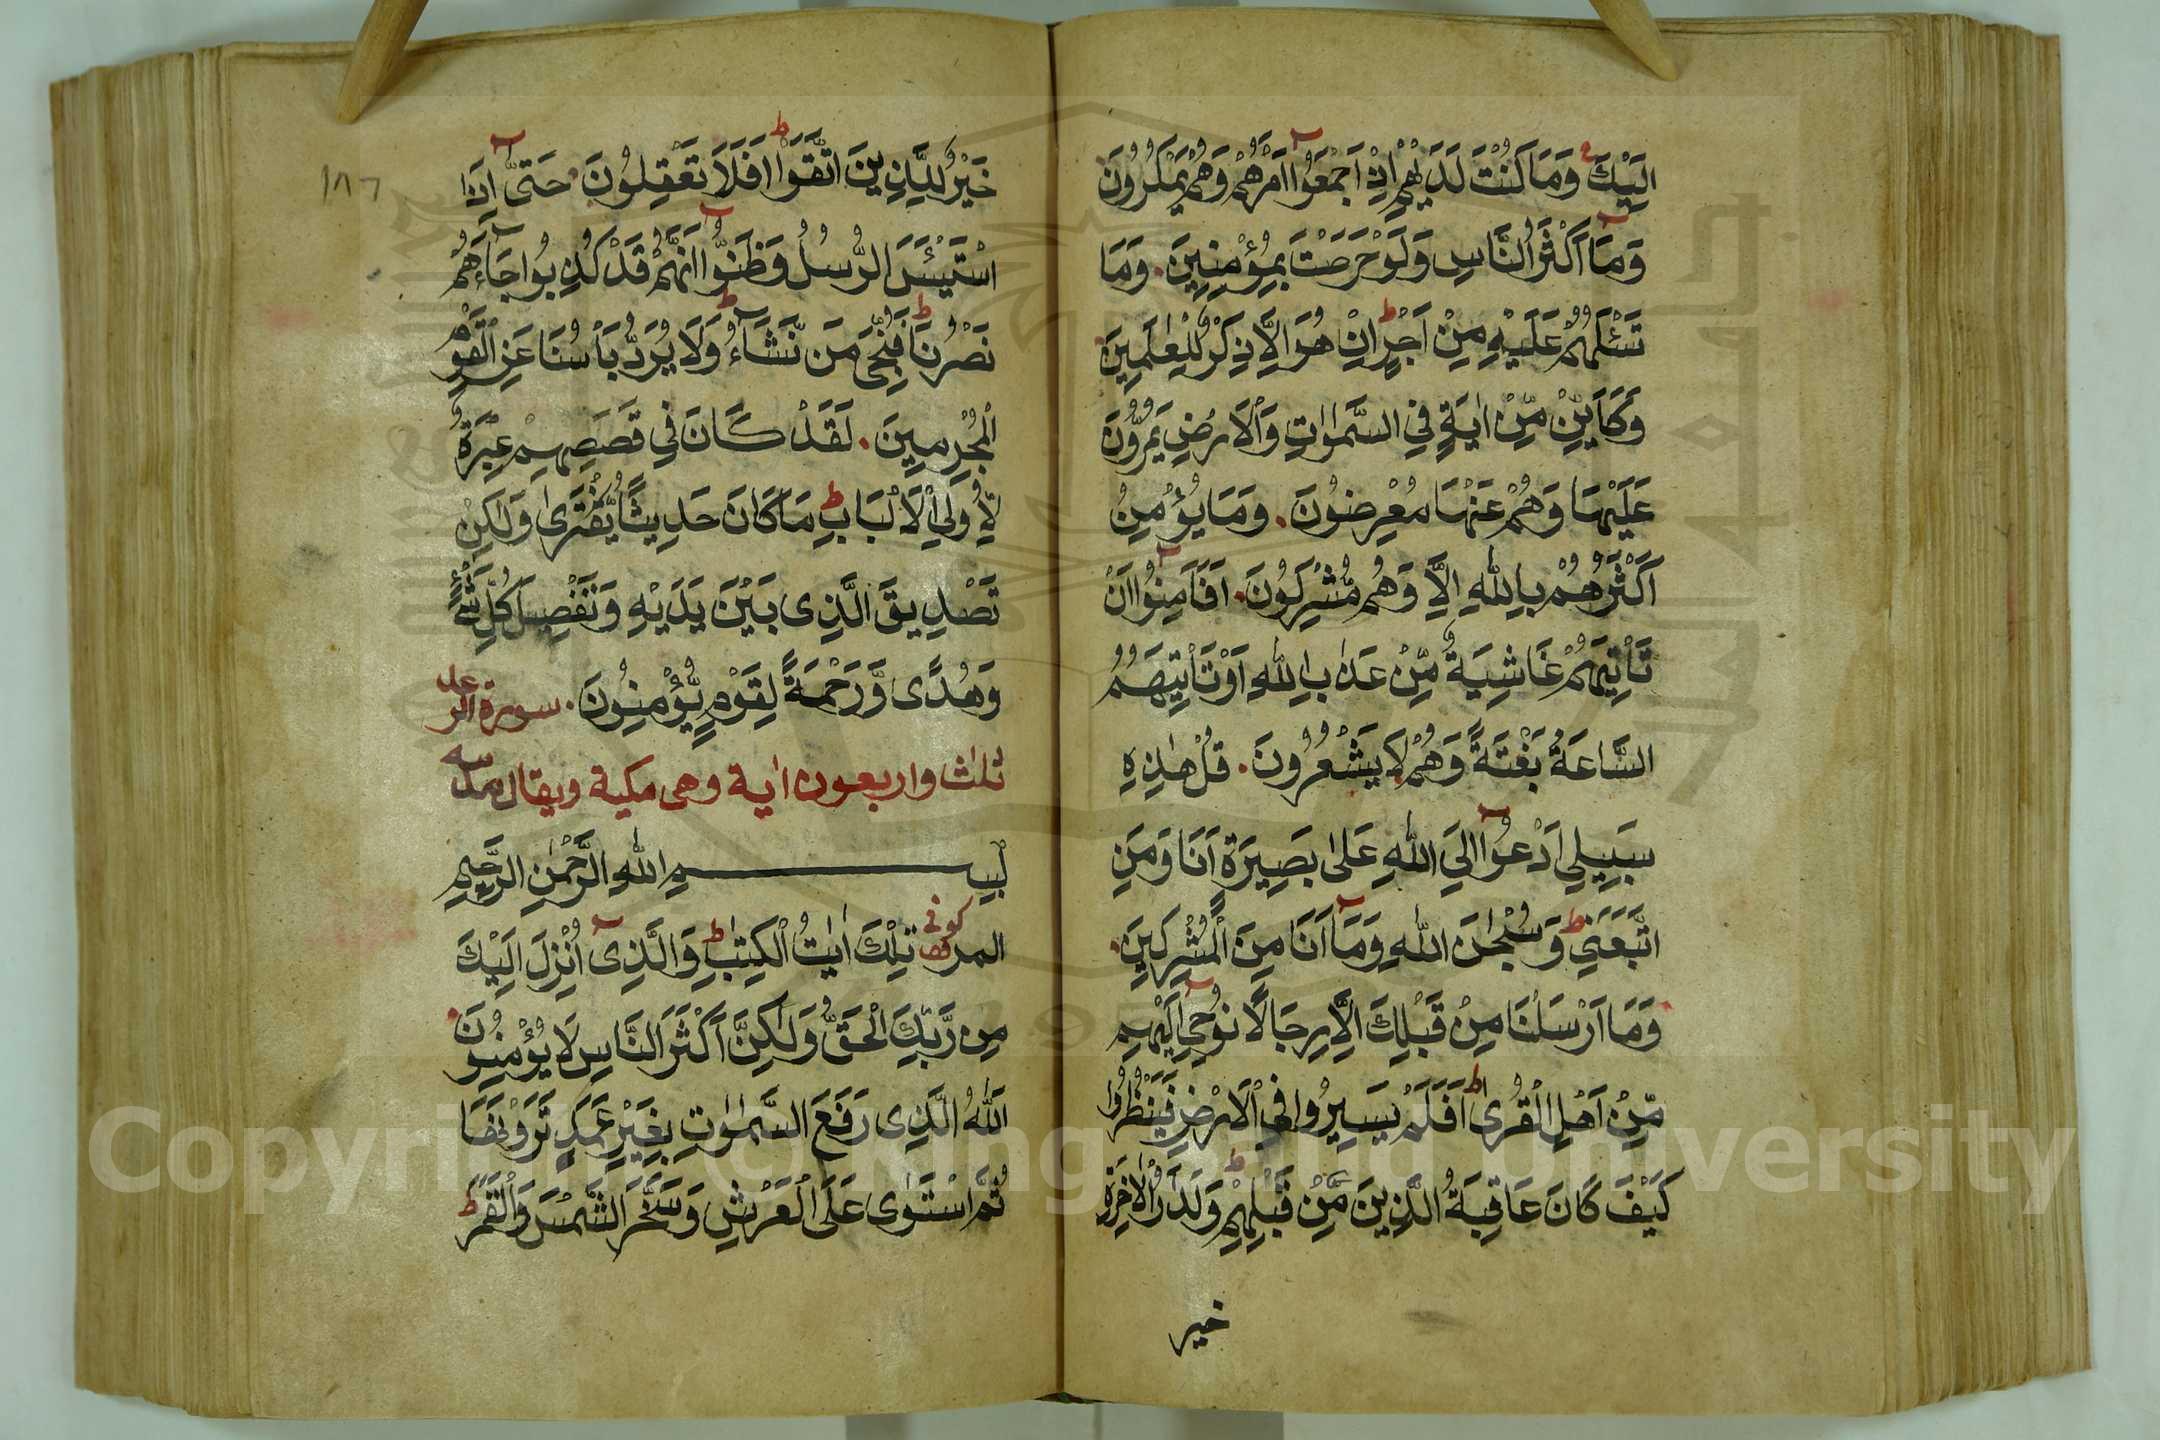 اِلَيْكَ وَمَا كُنْتَ لَدَيْهِمْ اِذْ اَجْمَعُوا اَمْرَهُمْ وَهُمْ يَمْكُرُونَ
وَمَا اَكْثَرُ النَّاسِ وَلَوْ حَرَصْتَ بِمُؤْمِنِينَ. وَمَا
تَسْئَلُهُمْ عَلَيْهِ مِنْ اَجْرٍ ط اِنْ هُوَ اِلَّا ذِكْرٌ لِلْعٰلَمِينَ.
وَكَاَيِّنْ مِّنْ اٰيَةٍ فِي السَّمٰوٰتِ وَالْاَرْضِ يَمُرُّونَ
عَلَيْهَا وَهُمْ عَنْهَا مُعْرِضُونَ. وَمَا يُؤْمِنُ
اَكْثَرُهُمْ بِاللّٰهِ اِلَّا وَهُمْ مُّشْرِكُونَ. اَفَاَمِنُوا اَنْ
تَاْتِيَهُمْ غَاشِيَةٌ مِّنْ عَذَابِ اللّٰهِ اَوْ تَاْتِيَهُمُ
السَّاعَةُ بَغْتَةً وَهُمْ لَا يَشْعُرُونَ. قُلْ هٰذِهِ
سَبِيلِي اَدْعُوا اِلَي اللّٰهِ عَلٰى بَصِيرَةٍ اَنَا وَمَنِ
اتَّبَعَنِي ط وَسُبْحٰنَ اللّٰهِ وَمَا اَنَا مِنَ الْمُشْرِكِينَ.
وَمَا اَرْسَلْنَا مِنْ قَبْلِكَ اِلَّا رِجَالًا نُوحِي اِلَيْهِمْ
مِّنْ اَهْلِ الْقُرٰى ط اَفَلَمْ يَسِيرُوا فِي الْاَرْضِ فَيَنْظُرُوا
كَيْفَ كَانَ عَاقِبَةُ الَّذِينَ مِنْ قَبْلِهِمْ ط وَلَدَارُ الْاٰخِرَةِ
خير
١٨٦
خَيْرٌ لِّلَّذِينَ اتَّقَوْا ط اَفَلَا تَعْقِلُونَ. حَتّٰى اِذَا
اسْتَيْئَسَ الرُّسُلُ وَظَنُّوا اَنَّهُمْ قَدْ كُذِبُوا جَاءَهُمْ
نَصْرُنَا ط فَنُجِّىَ مَنْ نَّشَاءُ ط وَلَا يُرَدُّ بَاْسُنَا عَنِ الْقَوْمِ
الْمُجْرِمِينَ. لَقَدْ كَانَ فِي قَصَصِهِمْ عِبْرَةٌ
لِّاُولِي الْاَلْبَابِ ط مَا كَانَ حَدِيثًا يُّفْتَرٰى وَلٰكِنْ
تَصْدِيقَ الَّذِى بَيْنَ يَدَيْهِ وَتَفْصِيلَ كُلِّ شَيْءٍ
وَهُدًى وَّرَحْمَةً لِقَوْمٍ يُّؤْمِنُونَ. سورة الرعد
ثلٰث واربعون اٰية وهى مكية ويقال مدنية
بِسْمِ اللّٰهِ الرَّحْمٰنِ الرَّحِيمِ
المر كوفى تِلْكَ اٰيٰتُ الْكِتٰبِ ط وَالَّذِى اُنْزِلَ اِلَيْكَ
مِن رَّبِّكَ الْحَقُّ وَلٰكِنَّ اَكْثَرَ النَّاسِ لَا يُؤْمِنُونَ.
اَللّٰهُ الَّذِى رَفَعَ السَّمٰوٰتِ بِغَيْرِ عَمَدٍ تَرَوْنَهَا
ثُمَّ اسْتَوٰى عَلَى الْعَرْشِ وَسَخَّرَ الشَّمْسَ وَالْقَمَرَ ط
Copyright © King Saud University